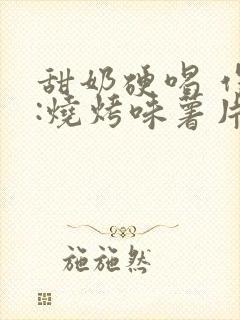 甜奶硬唱
:燒烤味薯片
施施然